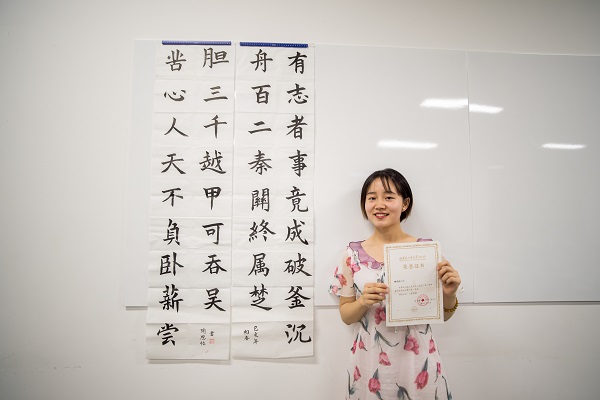 有志者事竟成破釜沉
舟百二秦關終属楚
己亥年
苦心人天不負卧薪尝
胆三千越甲可吞吴
書
荣誉证书